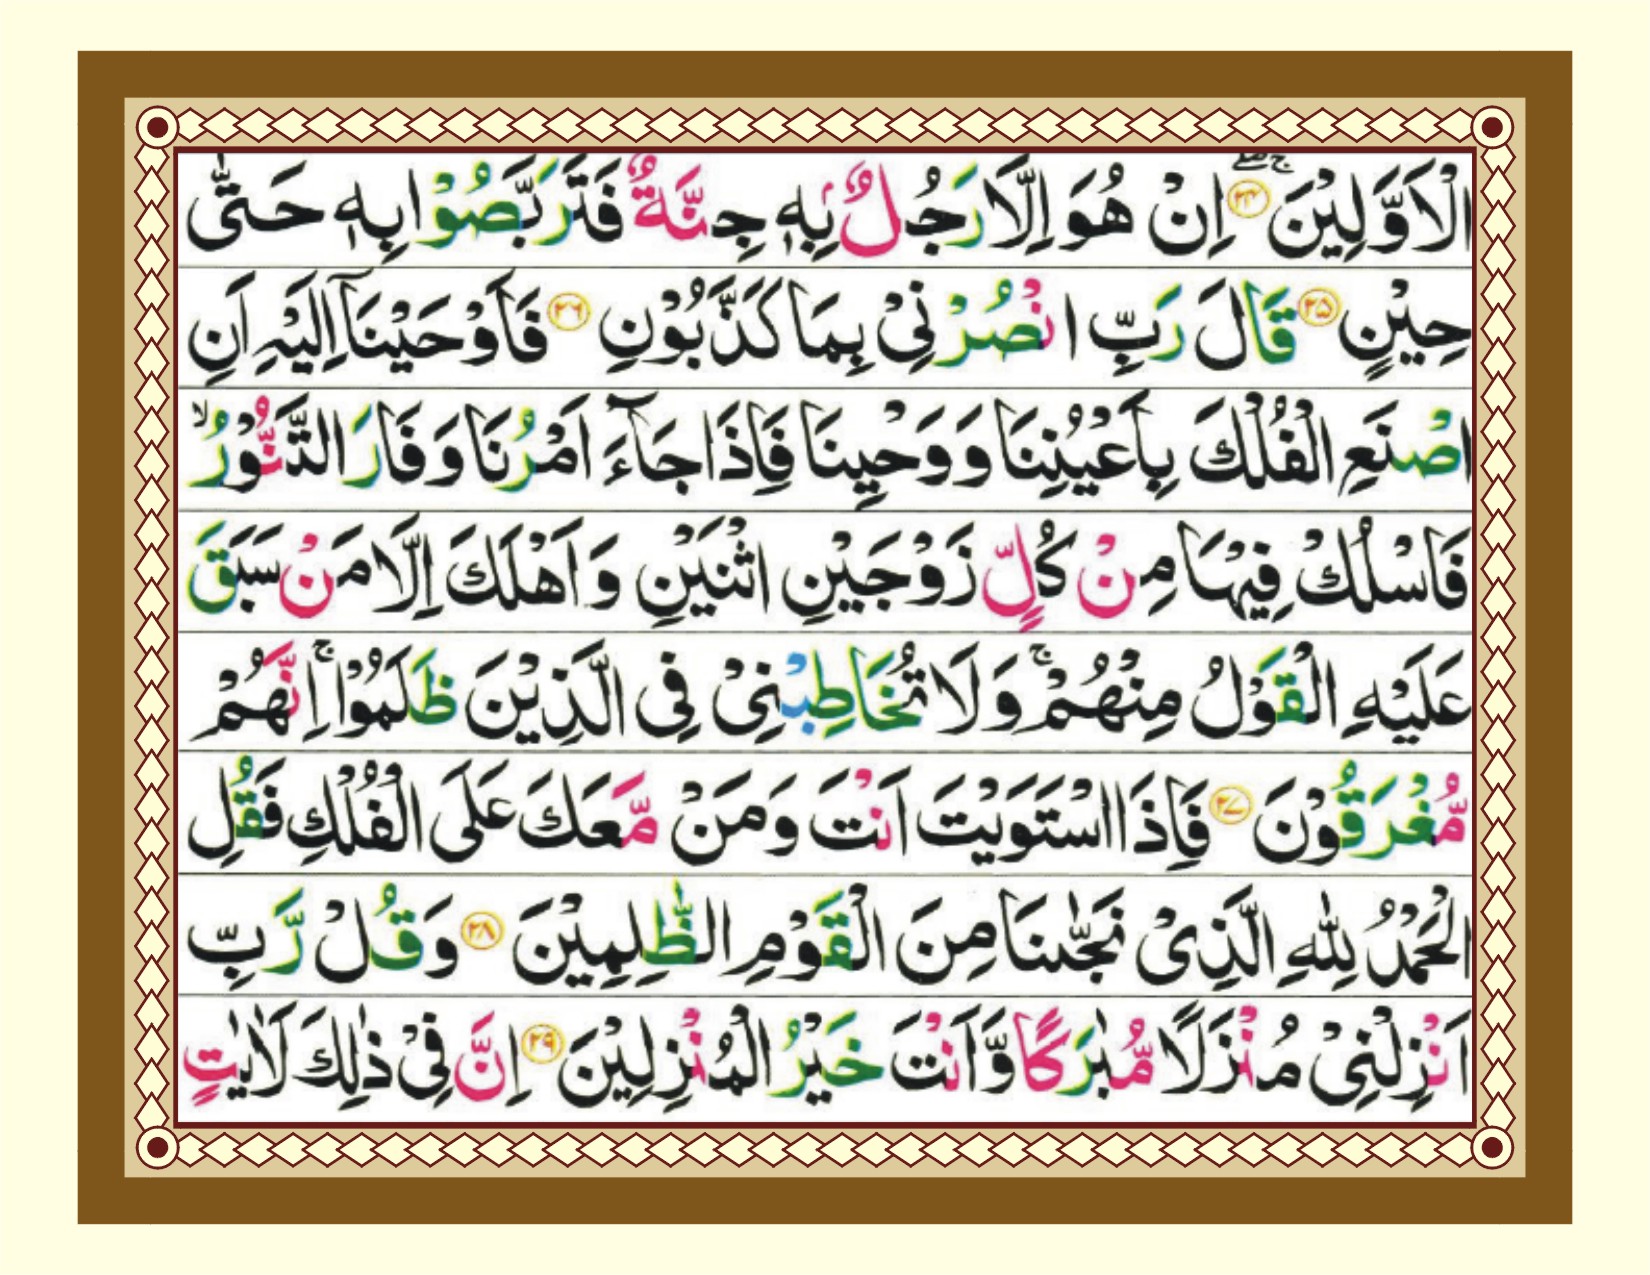 الْاَوَّلِيْنَ ﴿۲۴﴾ اِنْ هُوَ اِلَّا رَجُلٌۢ بِهٖ جِنَّةٌ فَتَرَبَّصُوْا بِهٖ حَتّٰى
حِيْنٍ ﴿۲۵﴾ قَالَ رَبِّ انْصُرْنِىْ بِمَا كَذَّبُوْنِ ﴿۲۶﴾ فَاَوْحَيْنَاۤ اِلَيْهِ اَنِ
اصْنَعِ الْفُلْكَ بِاَعْيُنِنَا وَوَحْيِنَا فَاِذَا جَآءَ اَمْرُنَا وَفَارَ التَّنُّوْرُۙ
فَاسْلُكْ فِيْهَا مِنْ كُلٍّ زَوْجَيْنِ اثْنَيْنِ وَاَهْلَكَ اِلَّا مَنْ سَبَقَ
عَلَيْهِ الْقَوْلُ مِنْهُمْۚ وَلَا تُخَاطِبْنِىْ فِى الَّذِيْنَ ظَلَمُوْاۚ اِنَّهُمْ
مُّغْرَقُوْنَ ﴿۲۷﴾ فَاِذَا اسْتَوَيْتَ اَنْتَ وَمَنْ مَّعَكَ عَلَى الْفُلْكِ فَقُلِ
الْحَمْدُ لِلّٰهِ الَّذِىْ نَجّٰىنَا مِنَ الْقَوْمِ الظّٰلِمِيْنَ ﴿۲۸﴾ وَقُلْ رَّبِّ
اَنْزِلْنِىْ مُنْزَلًا مُّبٰرَكًا وَّاَنْتَ خَيْرُ الْمُنْزِلِيْنَ ﴿۲۹﴾ اِنَّ فِىْ ذٰلِكَ لَاٰيٰتٍ